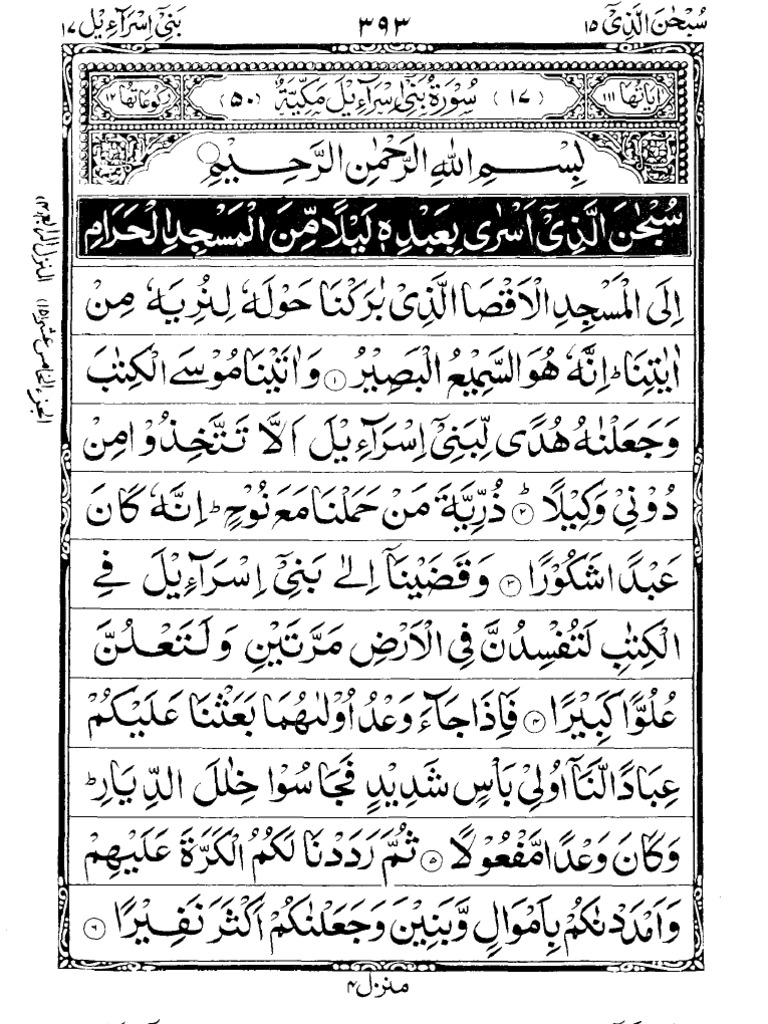 سُبْحٰنَ الَّذِیْۤ ۱۵
۳۹۳
بَنِیْۤ اِسْرَآءِیْل ۱۷
اٰیاتھا ۱۱۱
(۱۷) سُوْرَةُ بَنِیْۤ اِسْرَآءِیْلَ مَكِّیَّةٌ (۵۰)
رکوعاتھا ۱۲
بِسْمِ اللّٰهِ الرَّحْمٰنِ الرَّحِیْمِ
سُبْحٰنَ الَّذِیْۤ اَسْرٰی بِعَبْدِهٖ لَیْلًا مِّنَ الْمَسْجِدِ الْحَرَامِ
اِلَی الْمَسْجِدِ الْاَقْصَا الَّذِیْ بٰرَكْنَا حَوْلَهٗ لِنُرِیَهٗ مِنْ
اٰیٰتِنَا ؕ اِنَّهٗ هُوَ السَّمِیْعُ الْبَصِیْرُ ۱ وَ اٰتَیْنَا مُوْسَی الْكِتٰبَ
وَ جَعَلْنٰهُ هُدًی لِّبَنِیْۤ اِسْرَآءِیْلَ اَلَّا تَتَّخِذُوْا مِنْ
دُوْنِیْ وَكِیْلًا ؕ ۲ ذُرِّیَّةَ مَنْ حَمَلْنَا مَعَ نُوْحٍ ؕ اِنَّهٗ كَانَ
عَبْدًا شَكُوْرًا ۳ وَ قَضَیْنَاۤ اِلٰی بَنِیْۤ اِسْرَآءِیْلَ فِی
الْكِتٰبِ لَتُفْسِدُنَّ فِی الْاَرْضِ مَرَّتَیْنِ وَ لَتَعْلُنَّ
عُلُوًّا كَبِیْرًا ۴ فَاِذَا جَآءَ وَعْدُ اُوْلٰىهُمَا بَعَثْنَا عَلَیْكُمْ
عِبَادًا لَّنَاۤ اُولِیْ بَاْسٍ شَدِیْدٍ فَجَاسُوْا خِلٰلَ الدِّیَارِ ؕ
وَ كَانَ وَعْدًا مَّفْعُوْلًا ۵ ثُمَّ رَدَدْنَا لَكُمُ الْكَرَّةَ عَلَیْهِمْ
وَ اَمْدَدْنٰكُمْ بِاَمْوَالٍ وَّ بَنِیْنَ وَ جَعَلْنٰكُمْ اَكْثَرَ نَفِیْرًا ۶
المنزل الرابع (۴)
الجزء الخامس عشر (۱۵)
منزل ۴